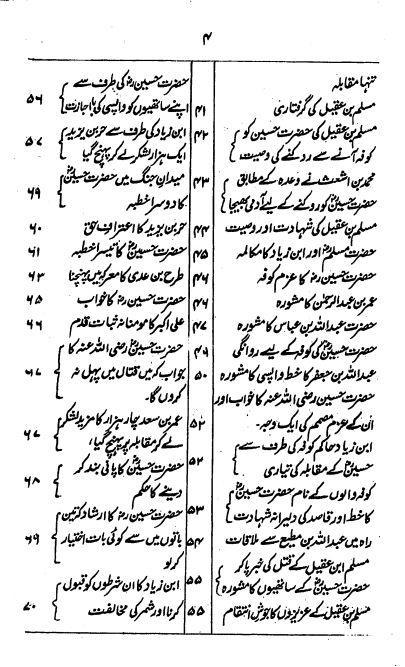 ۴
تنہا مقابلہ
مسلم بن عقیل کی گرفتاری ۴۱
مسلم بن عقیل کی حضرت حسین کو ۴۲
کوفہ آنے سے روکنے کی وصیت
محمد بن اشعث نے وعدہ کے مطابق ۴۳
حضرت حسینؓ کو روکنے کے لیے آدمی بھیجا
مسلم بن عقیل کی شہادت اور وصیت ۴۴
حضرت مسلمؓ اور ابن زیاد کا مکالمہ ۴۵
حضرت حسینؓ کا عزم کوفہ ۴۶
عمر بن عبدالرحمٰن کا مشورہ ۴۶
حضرت عبداللہ بن عباس کا مشورہ ۴۷
حضرت حسینؓ کی کوفہ کے لیے روانگی ۴۹
عبداللہ بن جعفر کا خط واپسی کا مشورہ ۵۰
حضرت حسین رضی اللہ عنہ کا خواب اور
اُن کے عزم مصمم کی ایک وجہ ۵۲
ابن زیاد حاکم کوفہ کی طرف سے
حسینؓ کے مقابلہ کی تیاری ۵۲
کوفہ والوں کے نام حضرت حسینؓ
کا خط اور قاصد کی دلیرانہ شہادت ۵۳
راہ میں عبداللہ بن مطیع سے ملاقات ۵۴
مسلم ابن عقیل کے قتل کی خبر پا کر
حضرت حسینؓ کے ساتھیوں کا مشورہ ۵۵
مسلم بن عقیل کے عزیزوں کا جوش انتقام ۵۵
حضرت حسینؓ کی طرف سے
اپنے ساتھیوں کو واپسی کی اجازت ۵۶
ابن زیاد کی طرف سے حر بن یزید
ایک ہزار لشکر لے کر پہنچ گیا ۵۷
میدان جنگ میں حضرت حسینؓ
کا دوسرا خطبہ ۵۹
حر بن یزید کا اعتراف حق ۶۰
حضرت حسینؓ کا تیسرا خطبہ ۶۱
طرح بن عدی کا معرکہ میں پہنچنا ۶۳
حضرت حسینؓ کا خواب ۶۵
علی اکبر کا مومنانہ ثبات قدم ۶۶
حضرت حسین رضی اللہ عنہ کا
جواب کہ میں قتال میں پہل نہ ۶۷
کروں گا۔
عمر بن سعد چار ہزار کا مزید لشکر
لے کر مقابلہ پر پہنچ گیا، ۶۷
حضرت حسینؓ کا پانی بند کر
دینے کا حکم ۶۸
حضرت حسینؓ کا ارشاد کہ تین
باتوں میں سے کوئی بات اختیار ۶۹
کر لو
ابن زیاد کا ان شرطوں کو قبول
کرنا اور شمر کی مخالفت ۷۰